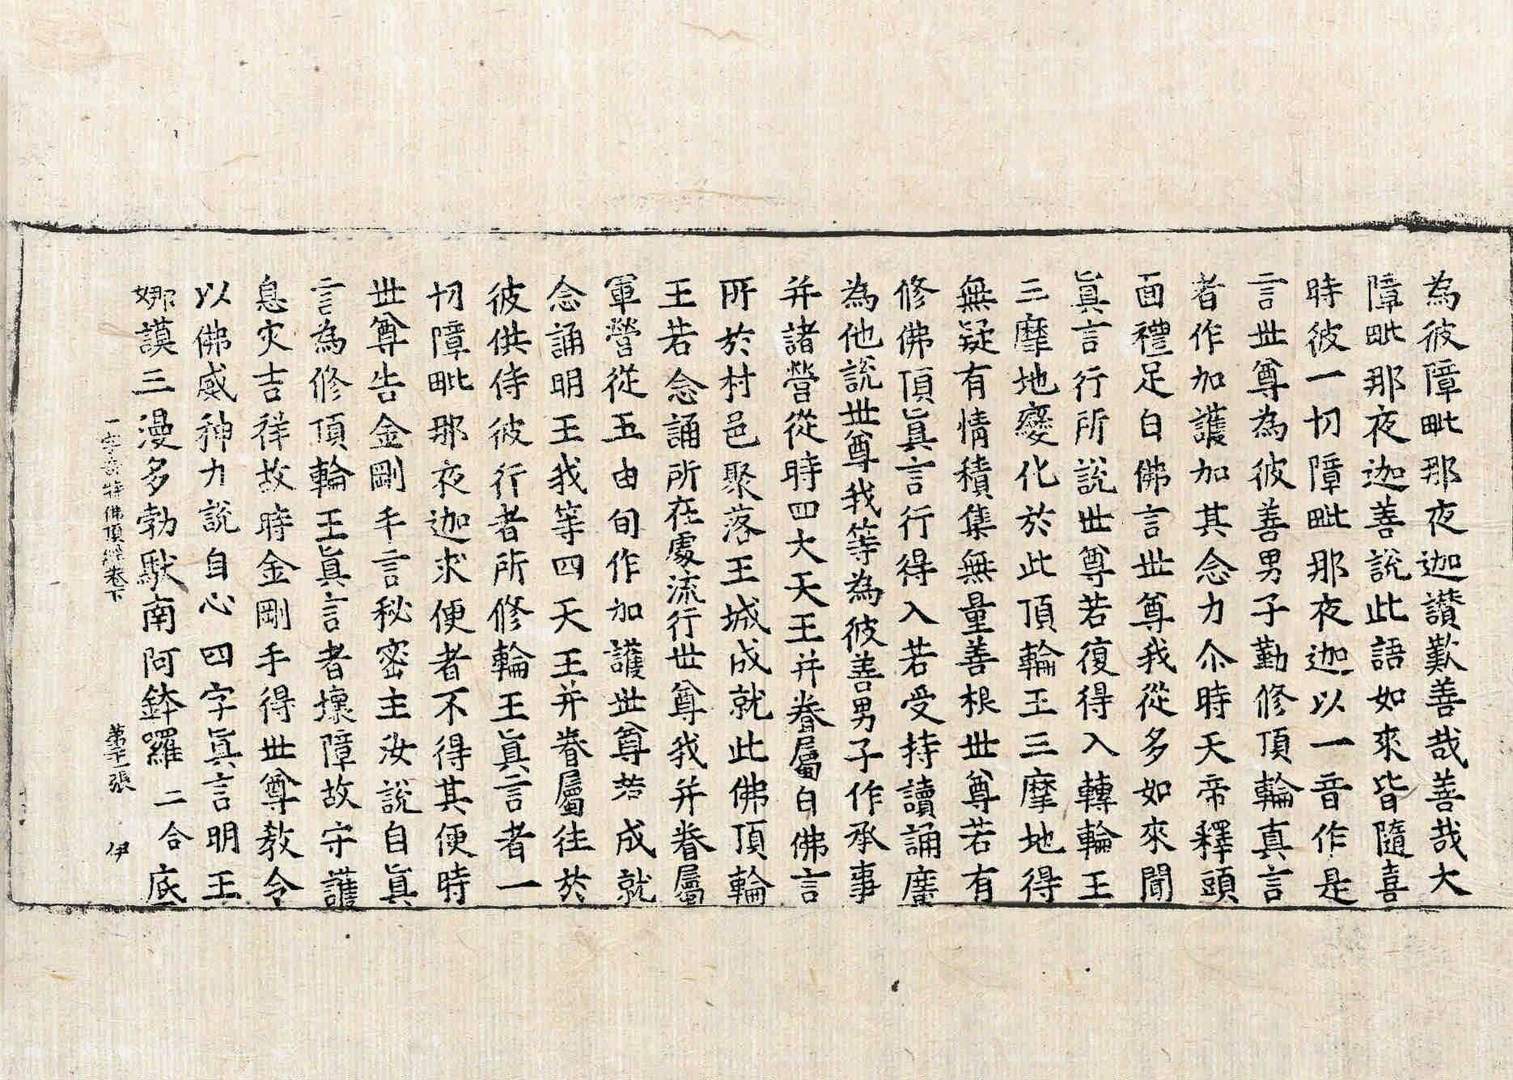 為彼障毗那夜迦讃歎善哉善哉大
障毗那夜迦善說此語如來皆隨喜
時彼一切障毗那夜迦以一音作是
言世尊為彼善男子勤修頂輪真言
者作加護加其念力尒時天帝釋頭
面禮足白佛言世尊我從多如來聞
眞言行所說世尊若復得入轉輪王
三摩地變化於此頂輪王三摩地得
無疑有情積集無量善根世尊若有
修佛頂眞言行得入若受持讀誦廣
為他說世尊我等為彼善男子作承事
并諸營從時四大天王并眷屬白佛言
所於村邑聚落王城成就此佛頂輪
王若念誦所在處流行世尊我并眷屬
軍營從五由旬作加護世尊若成就
念誦明王我等四天王并眷屬往於
彼供侍彼行者所修輪王眞言者一
切障毗那夜迦求便者不得其便時
世尊告金剛手言秘密主汝說自眞
言為修頂輪王眞言者壞障故守護
息灾吉祥故時金剛手得世尊教令
以佛威神力說自心四字眞言明王
娜謨三漫多勃馱南阿鉢囉二合底
一字竒特佛頂經卷下 第二十一張 伊